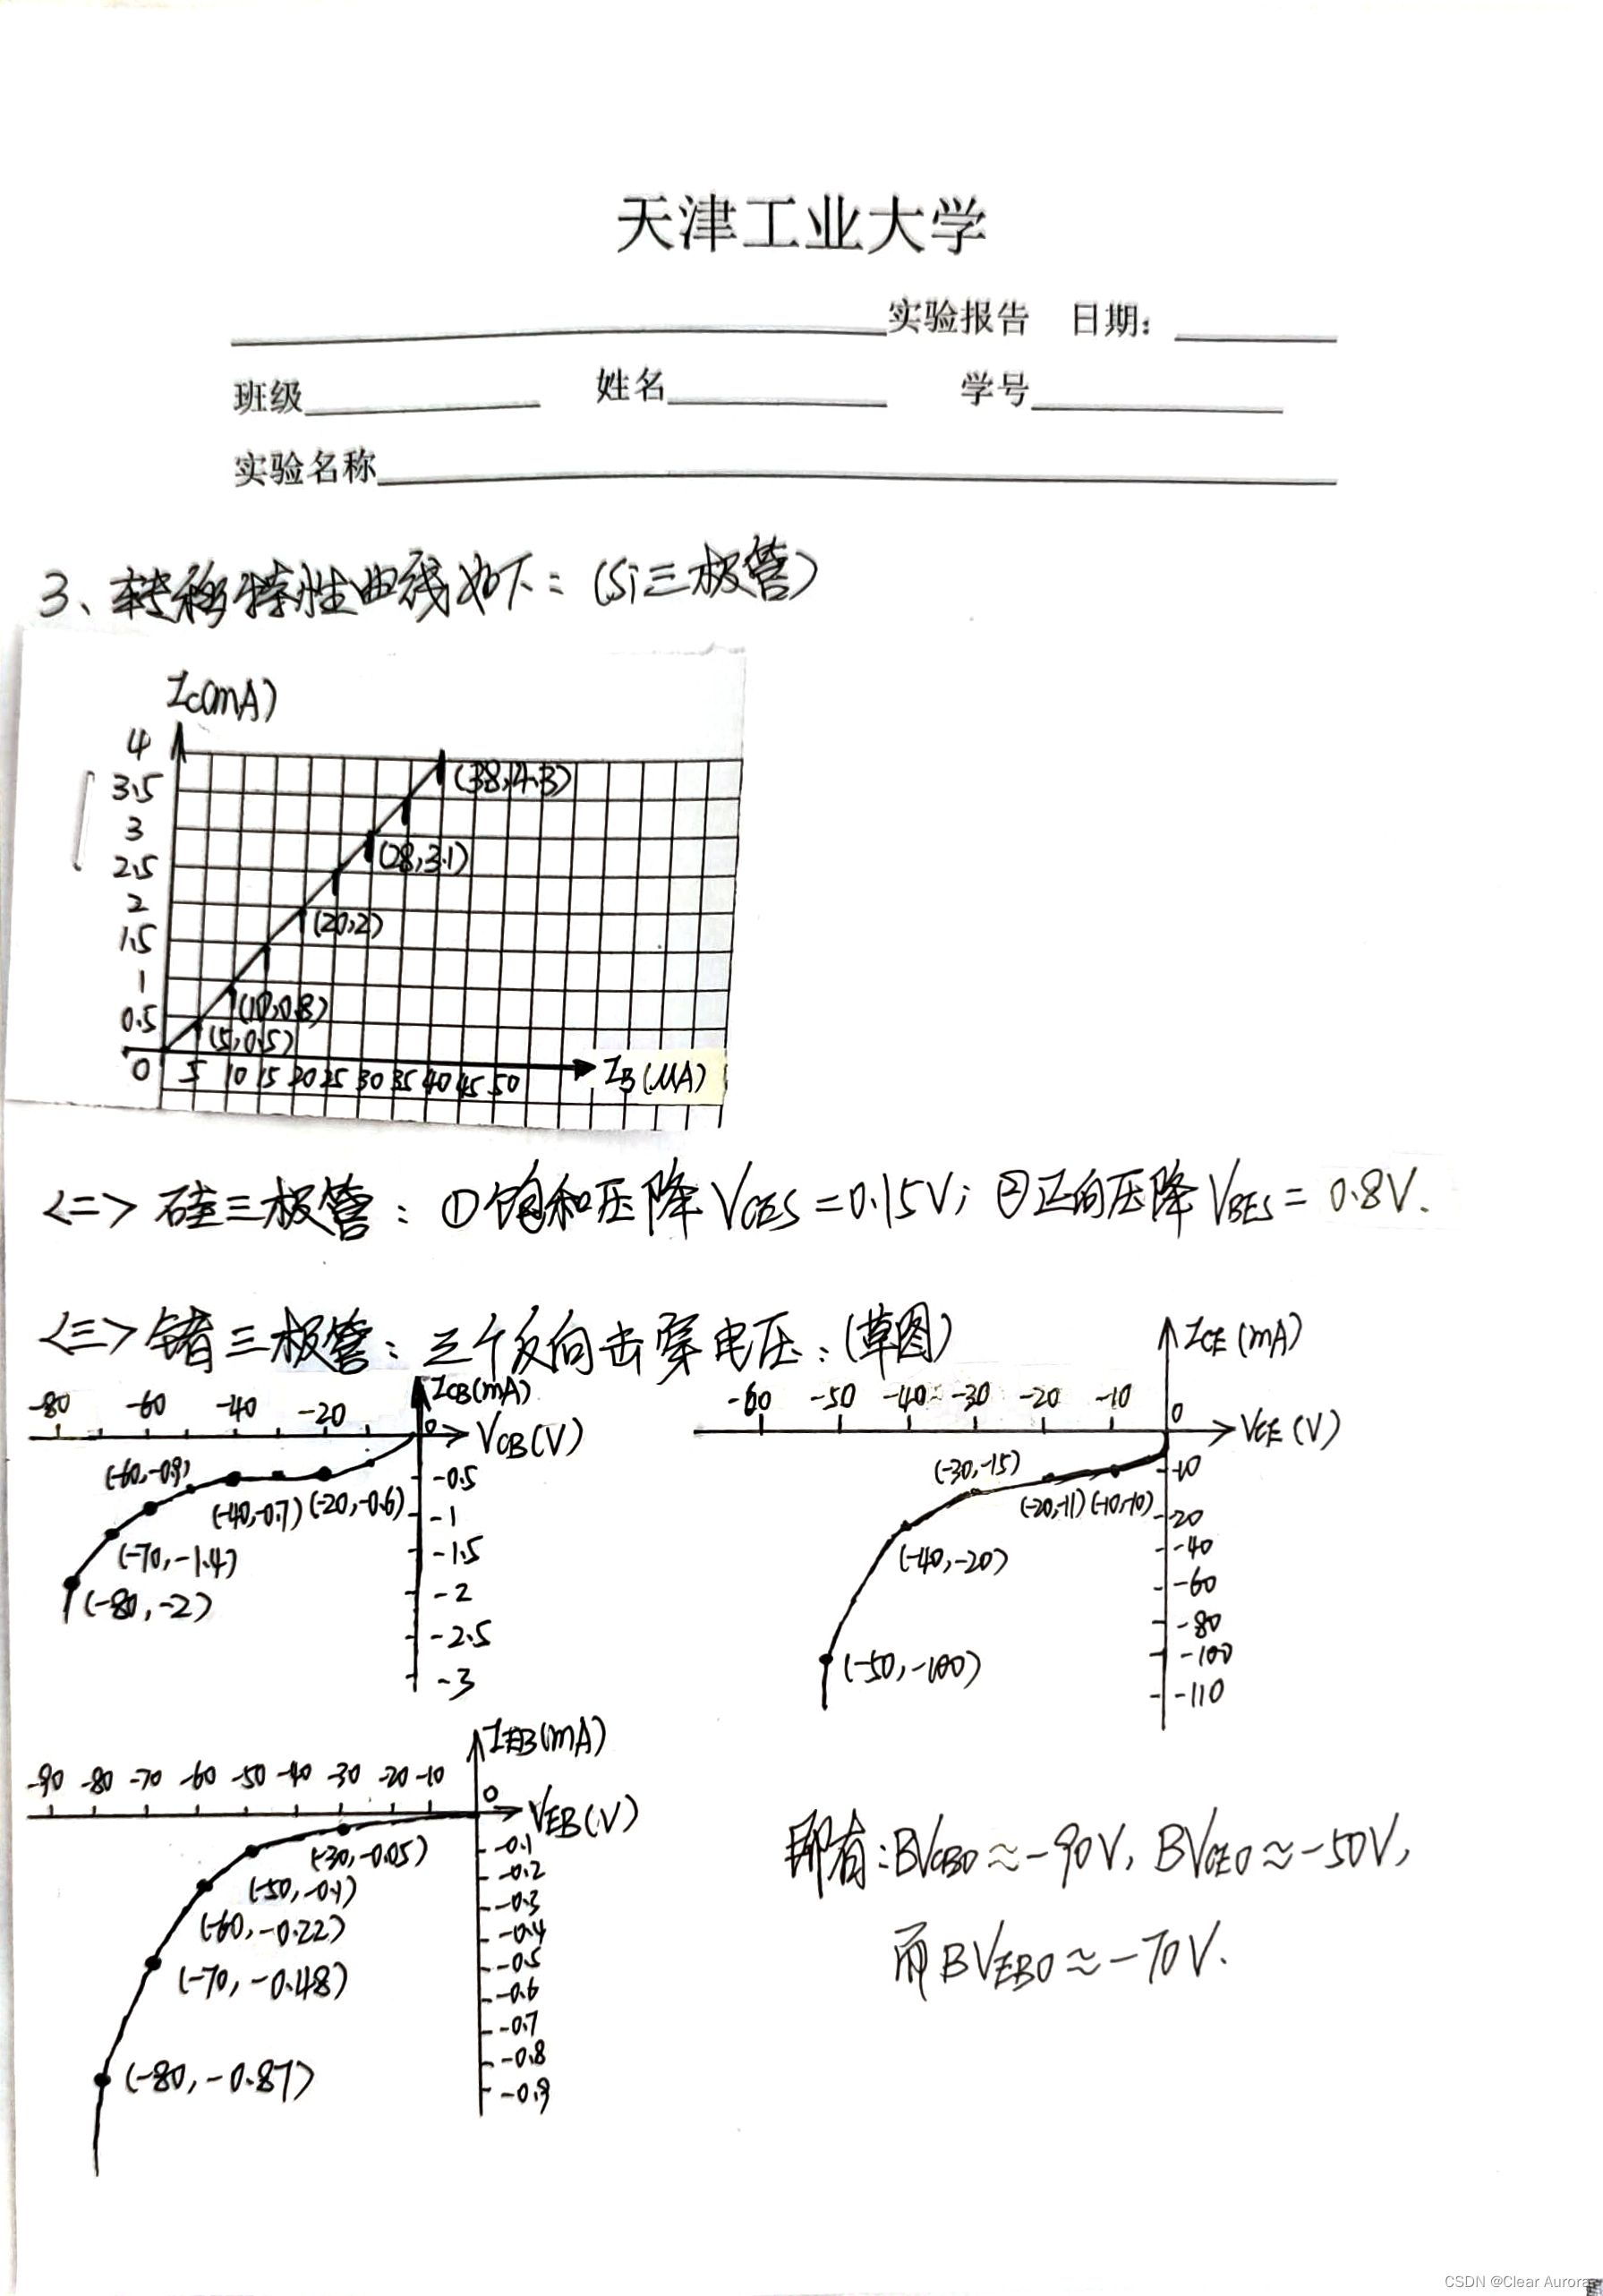 天津工业大学
实验报告 日期:
班级 姓名 学号
实验名称
3、转移特性曲线如下:(Si三极管)
Ic(mA)
4
3.5
3
2.5
2
1.5
1
0.5
0
(38,4.3)
(28,3.1)
(20,2)
(10,0.8)
(5,0.5)
5 10 15 20 25 30 35 40 45 50
IB(μA)
<二> 硅三极管: ①饱和压降VCES=0.15V; ②正向压降VBES=0.8V.
<三> 锗三极管: 三个反向击穿电压:(草图)
ICB(mA)
-80 -60 -40 -20 0
VCB(V)
(-60,-0.9)
(-40,-0.7) (-20,-0.6)
(-70,-1.4)
(-80,-2)
-0.5
-1
-1.5
-2
-2.5
-3
ICE(mA)
-60 -50 -40 -30 -20 -10 0
VCE(V)
(-30,-15)
(-20,-11) (-10,-10)
(-40,-20)
(-50,-100)
-10
-20
-40
-60
-80
-100
-110
IEB(mA)
-90 -80 -70 -60 -50 -40 -30 -20 -10 0
VEB(V)
(-30,-0.05)
(-50,-0.1)
(-60,-0.22)
(-70,-0.48)
(-80,-0.87)
-0.1
-0.2
-0.3
-0.4
-0.5
-0.6
-0.7
-0.8
-0.9
即有:BVCBO≈-90V, BVCEO≈-50V,
而BVEBO≈-70V.
CSDN @Clear Aurora